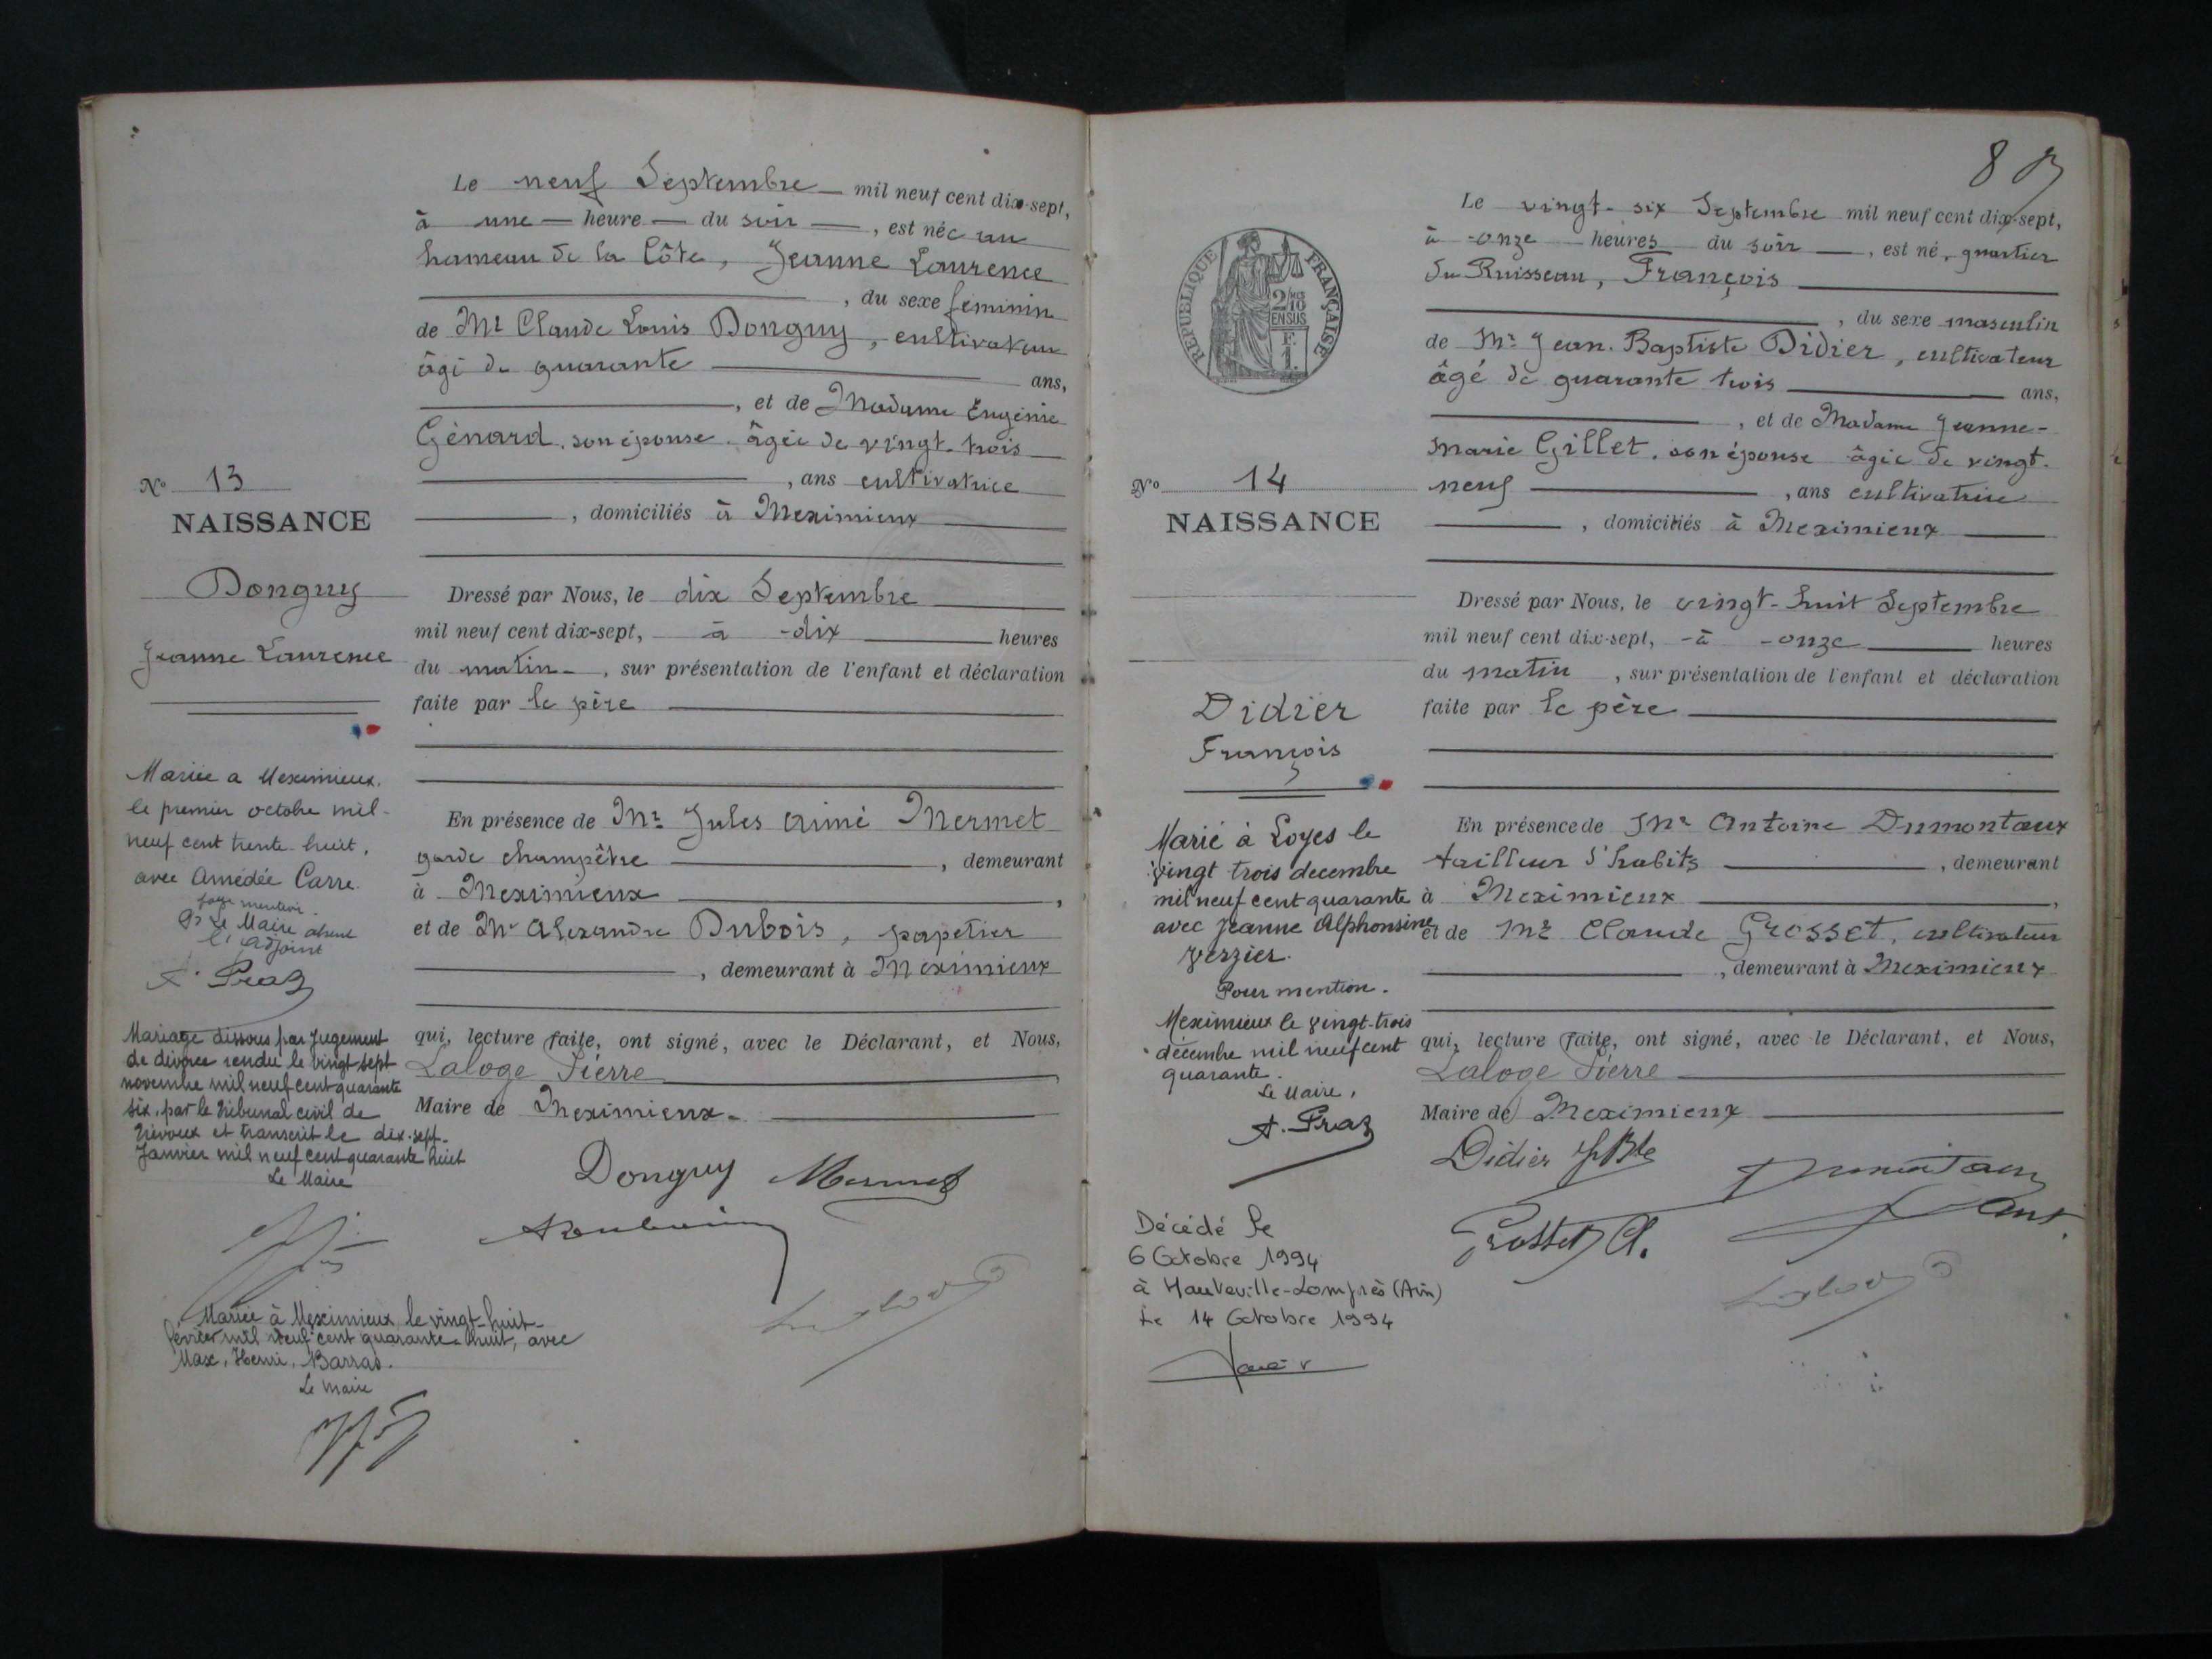 Le neuf Septembre mil neuf cent dix-sept,
à une heure du soir, est née au
hameau de la Côte, Jeanne Laurence
, du sexe féminin
de Mr Claude Louis Donguy, cultivateur
âgé de quarante ans,
, et de Madame Eugénie
Génard, son épouse âgée de vingt-trois
, ans cultivatrice
, domiciliés à Meximieux
No 13
NAISSANCE
Donguy
Jeanne Laurence
Dressé par Nous, le dix Septembre
mil neuf cent dix-sept, à dix heures
du matin, sur présentation de l'enfant et déclaration
faite par le père
En présence de Mr Jules Aimé Mermet
garde champêtre, demeurant
à Meximieux,
et de Mr Alexandre Dubois, papetier
, demeurant à Meximieux
qui, lecture faite, ont signé, avec le Déclarant, et Nous,
Laloge Pierre
Maire de Meximieux
Donguy Mermet
Mariée a Meximieux,
le premier octobre mil
neuf cent trente huit,
avec Amédée Carre.
Pr Le Maire absent
l'adjoint
A. Praz
Mariage dissous par Jugement
de divorce rendu le vingt-sept
novembre mil neuf cent quarante
six, par le tribunal civil de
Trévoux et transcrit le dix-sept
Janvier mil neuf cent quarante huit
Le Maire
Mariée à Meximieux le vingt-huit
février mil neuf cent quarante-huit, avec
Max, Henri, Barras.
Le Maire
8
Le vingt-six Septembre mil neuf cent dix-sept,
à onze heures du soir, est né, quartier
du Ruisseau, François
, du sexe masculin
de Mr Jean-Baptiste Didier, cultivateur
âgé de quarante trois ans,
, et de Madame Jeanne-
Marie Gillet, son épouse âgée de vingt-
neuf, ans cultivatrice
, domiciliés à Meximieux
REPUBLIQUE FRANÇAISE
2/10 EN SUS
No 14
NAISSANCE
Didier
François
Dressé par Nous, le vingt-huit Septembre
mil neuf cent dix-sept, à onze heures
du matin, sur présentation de l'enfant et déclaration
faite par le père
En présence de Mr Antoine Dumontaux
tailleur d'habits, demeurant
à Meximieux,
et de Mr Claude Grosset, cultivateur
, demeurant à Meximieux
qui, lecture faite, ont signé, avec le Déclarant, et Nous,
Laloge Pierre
Maire de Meximieux
Didier J Bte
Grosset Cl.
Marié à Loyes le
vingt trois decembre
mil neuf cent quarante
avec Jeanne Alphonsine
Verzier.
Pour mention.
Meximieux le vingt-trois
décembre mil neuf cent
quarante.
Le Maire,
A. Praz
Décédé le
6 Octobre 1994
à Hauteville-Lompnès (Ain)
Le 14 Octobre 1994